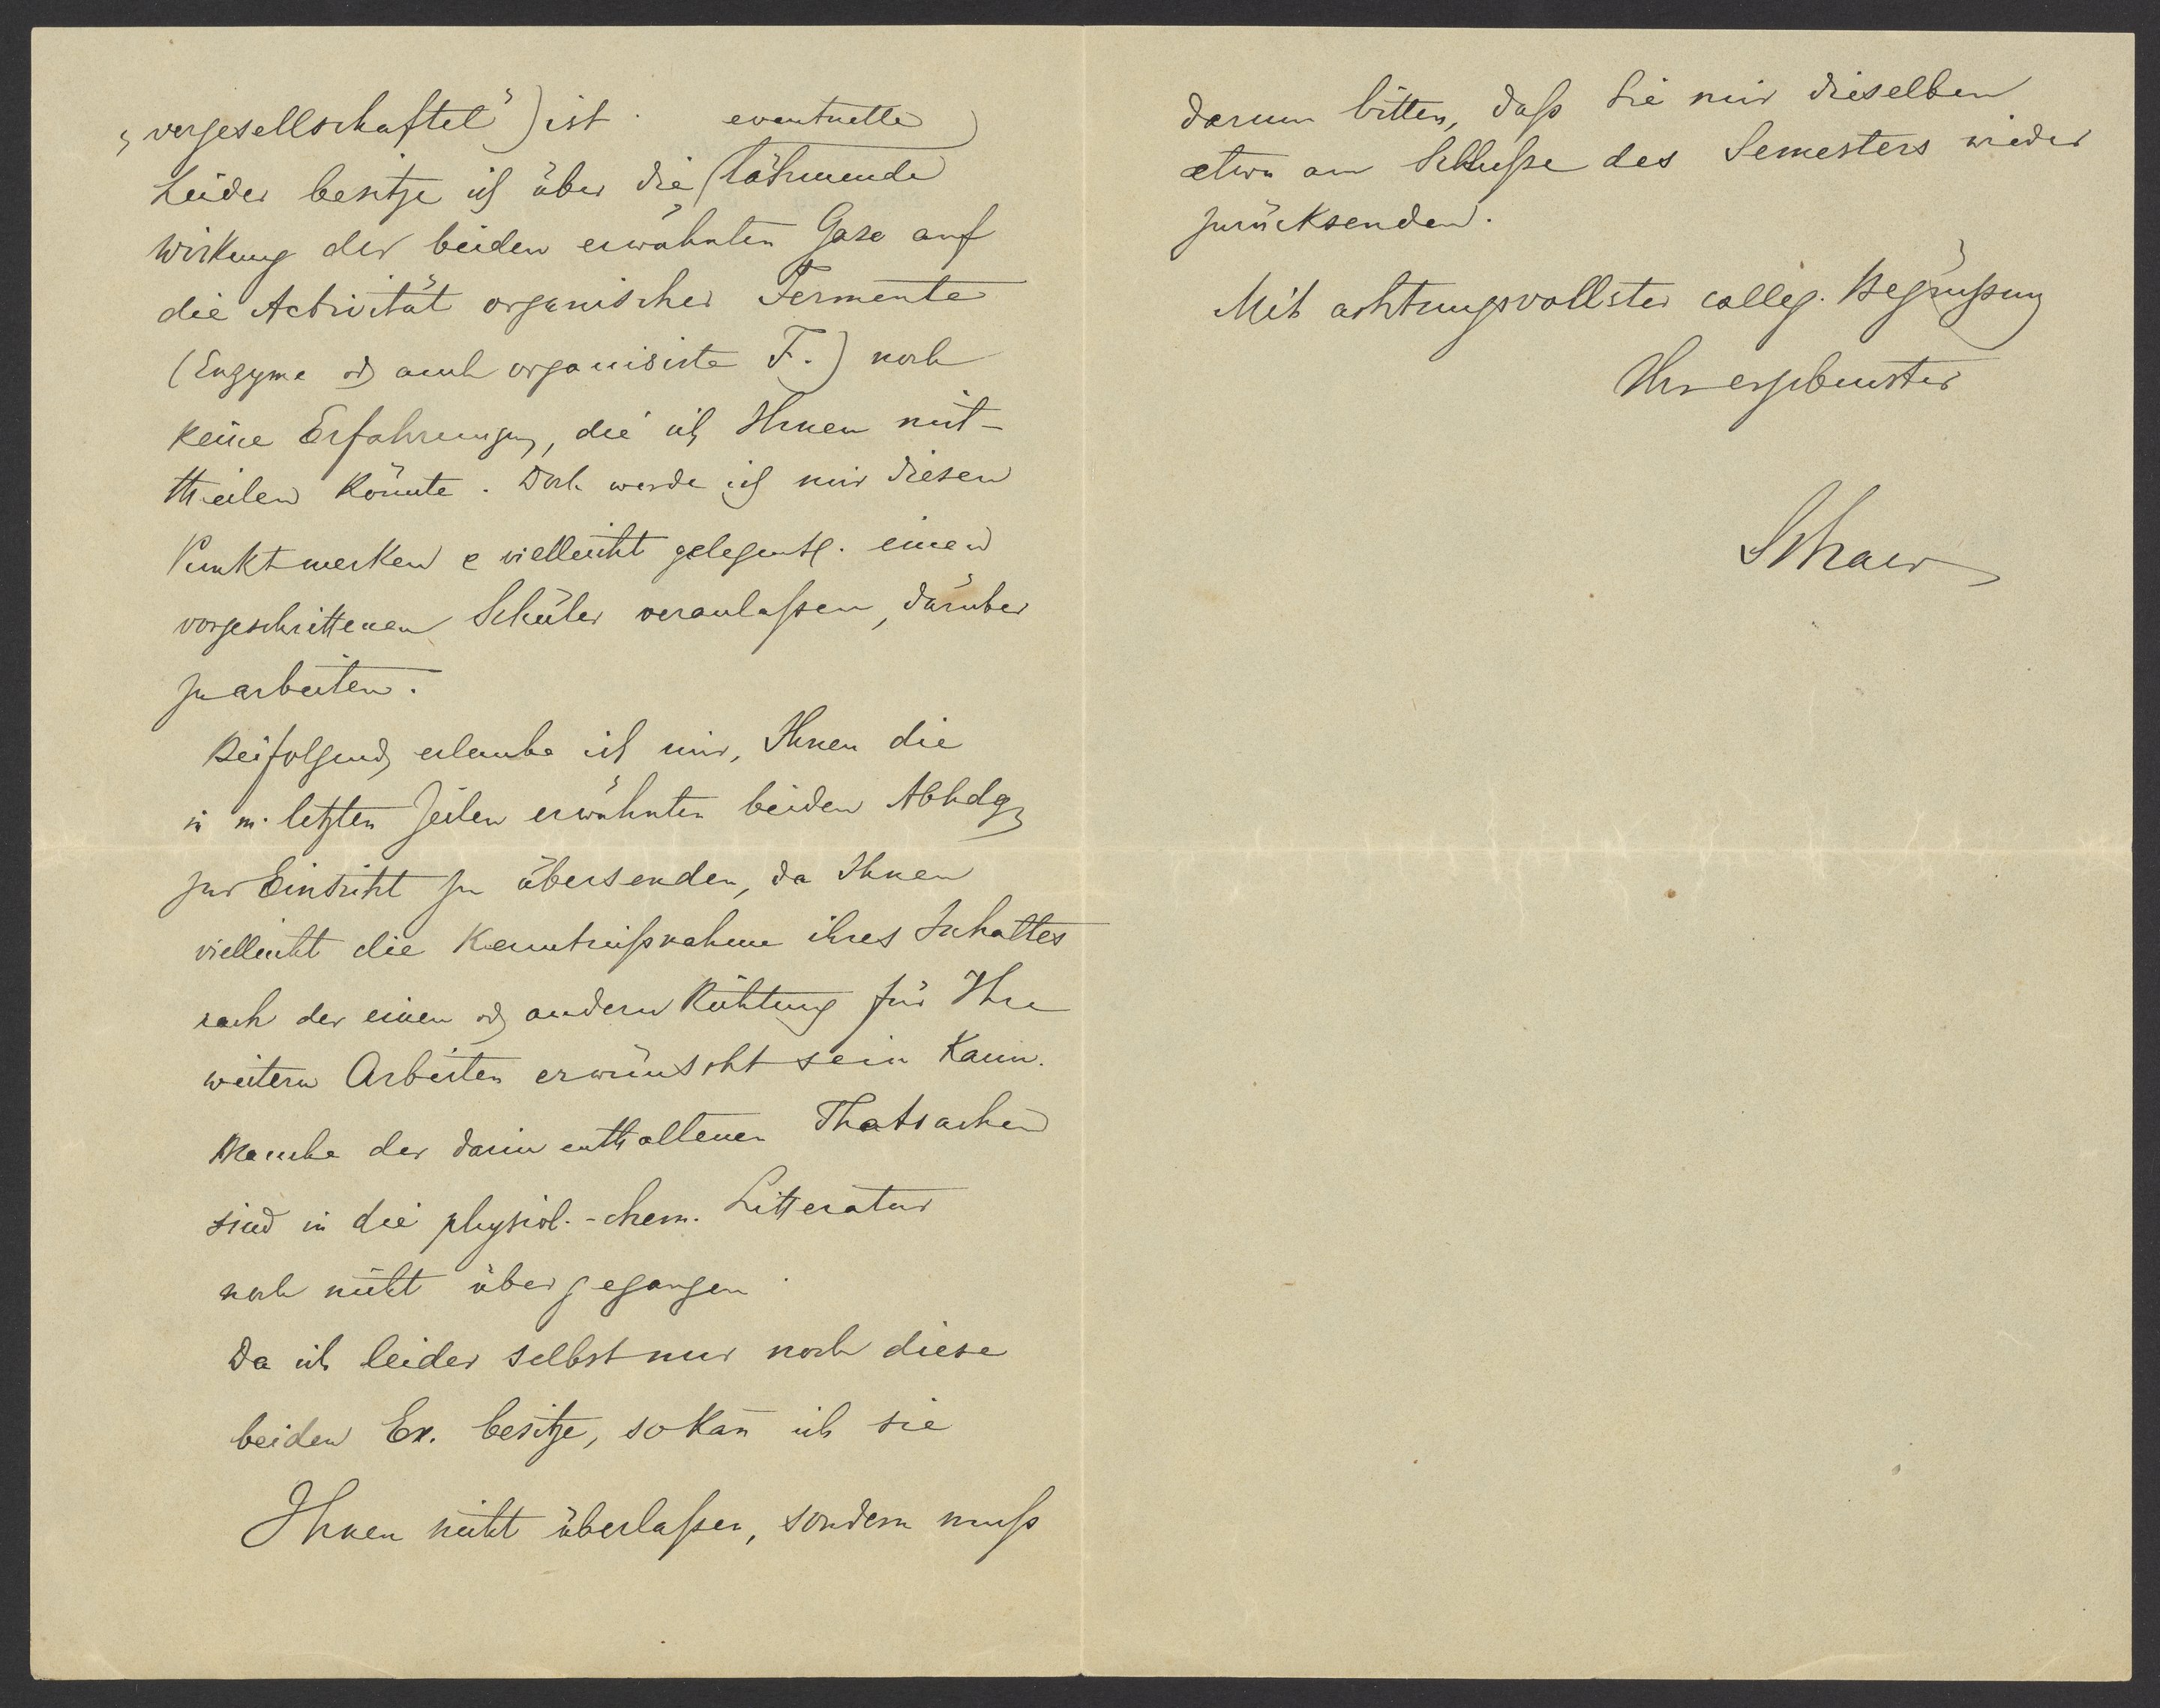 „vergesellschaftet") ist. eventuelle
Leider besitze ich über die lähmende
Wirkung der beiden erwähnten Gase auf
die Activität organischer Fermente
(Enzyme od auch organisirte F.) noch
keine Erfahrungen, die ich Ihnen mit-
theilen könnte. Doch werde ich mir diesen
Punkt merken & vielleicht gelegentl. einen
vorgeschrittenen Schüler veranlaßen, darüber
zu arbeiten.
Beifolgend erlaube ich mir, Ihnen die
in m. letzten Zeilen erwähnten beiden Abhdgn
zur Einsicht zu übersenden, da Ihnen
vielleicht die Kenntnißnahme ihres Inhaltes
nach der einen od andern Richtung für Ihre
weitern Arbeiten erwünscht sein kann.
Manche der darin enthaltenen Thatsachen
sind in die physiol.-chem. Litteratur
noch nicht übergegangen.
Da ich leider selbst nur noch diese
beiden Ex. besitze, so kan̄ ich sie
Ihnen nicht überlaßen, sondern muß
darum bitten, daß Sie mir dieselben
etwa am Schluße des Semesters wieder
zurücksenden.
Mit achtungsvollster colleg. Begrüßung
Ihr ergebenster